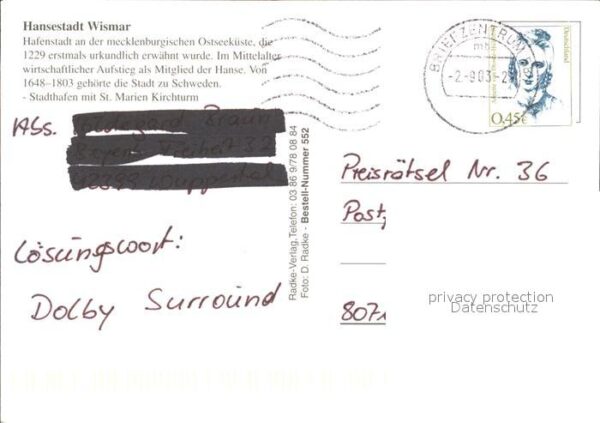 Hansestadt Wismar
Hafenstadt an der mecklenburgischen Ostseeküste, die
1229 erstmals urkundlich erwähnt wurde. Im Mittelalter
wirtschaftlicher Aufstieg als Mitglied der Hanse. Von
1648–1803 gehörte die Stadt zu Schweden.
- Stadthafen mit St. Marien Kirchturm
Abs.
Lösungswort:
Dolby Surround
Radke-Verlag, Telefon: 03 86 9/78 08 84
Foto: D. Radke - Bestell-Nummer 552
BRIEFZENTRUM
mb
Deutschland
0,45€
Preisrätsel Nr. 36
Post
807
privacy protection
Datenschutz